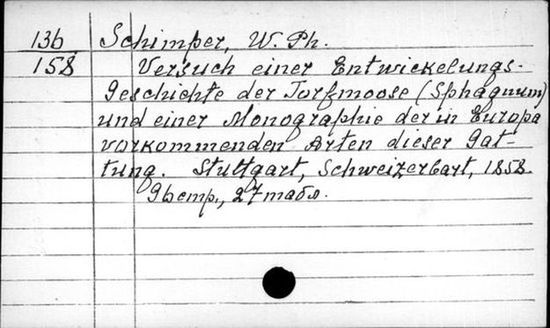 136 Schimper, W. Ph.
158 Versuch einer Entwickelungs-
Geschichte der Torfmoose (Sphagnum)
und einer Monographie der in Europa
vorkommenden Arten dieser Gat-
tung. Stuttgart, Schweizerbart, 1858.
27 табл.